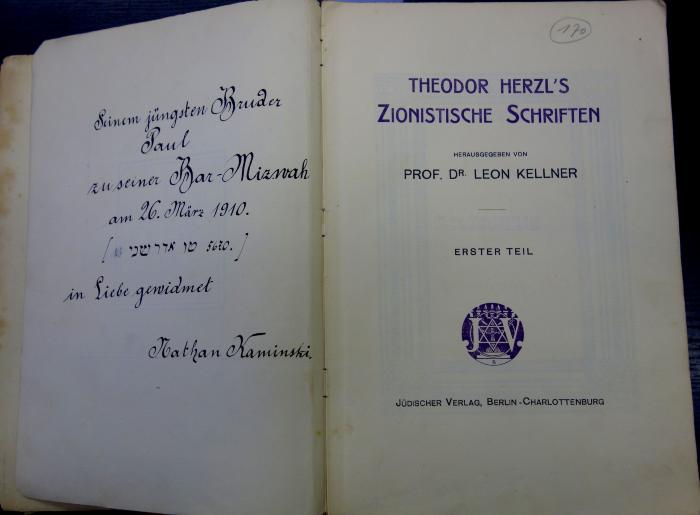 Seinem jüngsten Bruder
Paul
zu seiner Bar-Mizwah
am 26. März 1910.
[ טו אדר שני 5670. ]
in Liebe gewidmet
Nathan Kaminski.
170
THEODOR HERZL'S
ZIONISTISCHE SCHRIFTEN
HERAUSGEGEBEN VON
PROF. DR. LEON KELLNER
ERSTER TEIL
J V
JÜDISCHER VERLAG, BERLIN-CHARLOTTENBURG